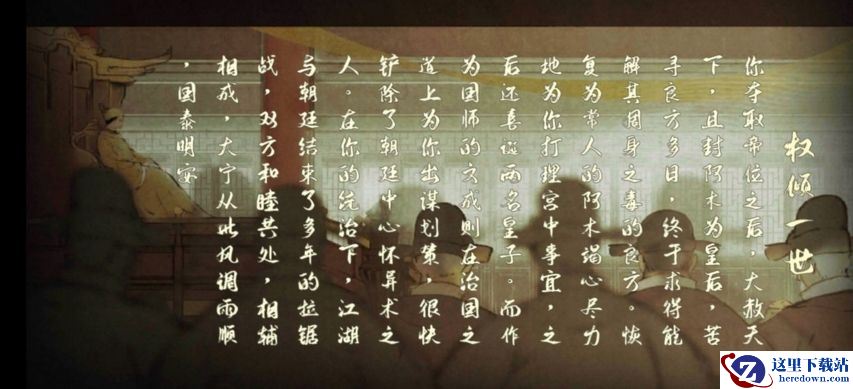 权倾一世
你夺取帝位之后，大赦天
下，且封阿木为皇后，苦
寻良方多日，终于求得能
解其周身之毒的良方。恢
复为常人的阿木竭心尽力
地为你打理宫中事宜，之
后还喜诞两名皇子。而作
为国师的玄成则在治国之
道上为你出谋划策，很快
铲除了朝廷中心怀异术之
人。在你的统治下，江湖
与朝廷结束了多年的拉锯
战，双方和睦共处，相辅
相成，大宁从此风调雨顺
，国泰明安
这里下载站
heredown.com